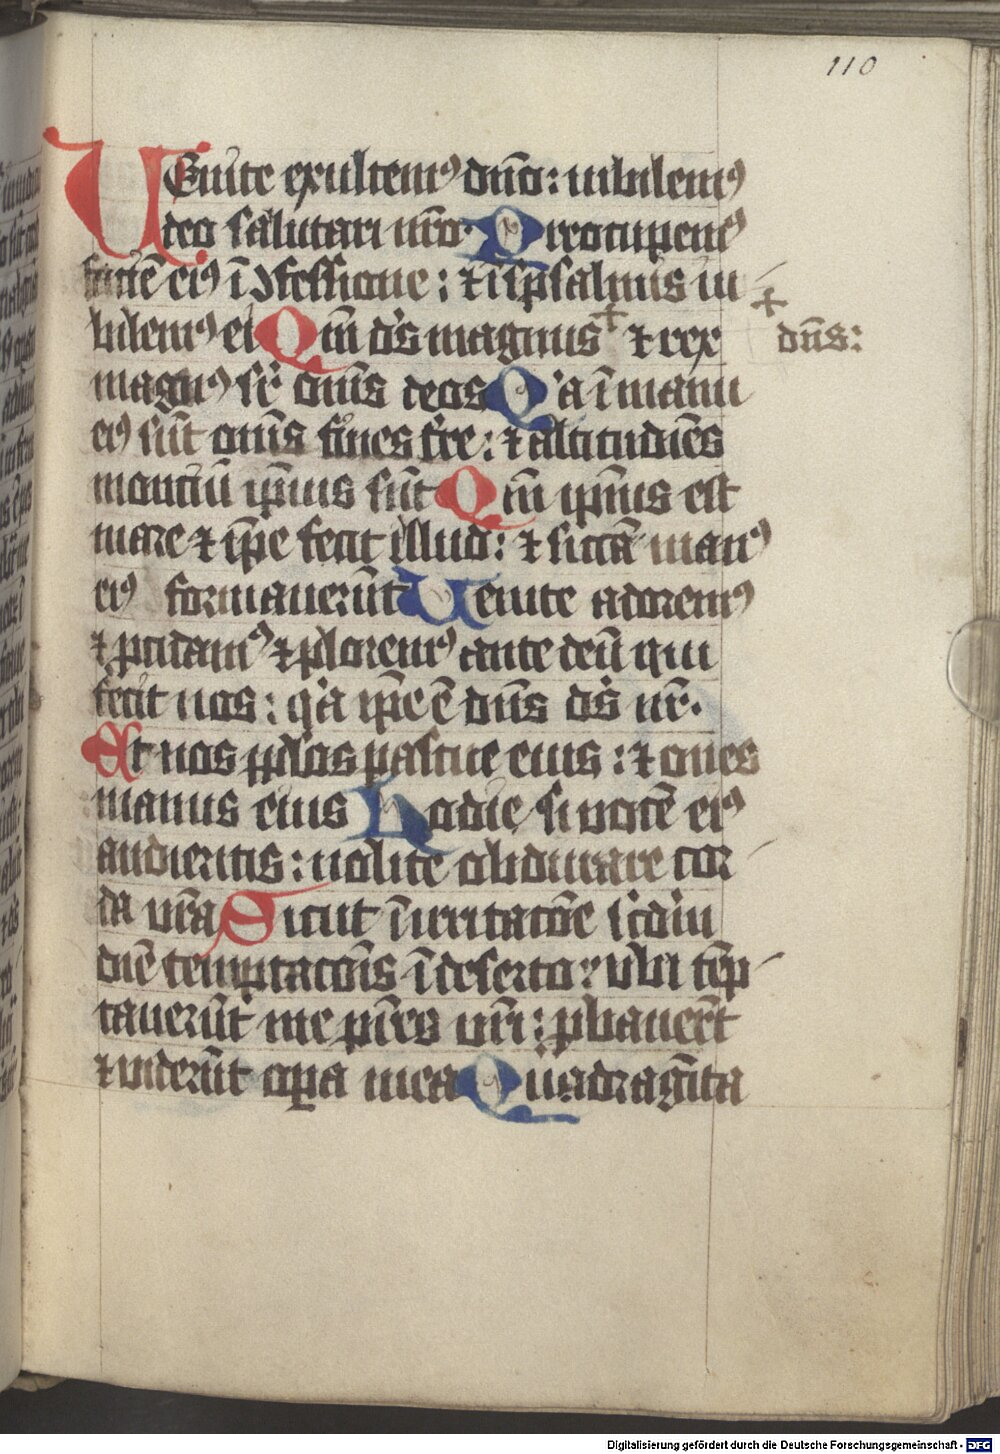 110
UEnite exultemꝰ dn̄o: iubilemꝰ
deo salutari nr̄o Preocupemꝰ
faciē eiꝰ ī ꝯfessione: ⁊ ī psalmis iu
bilemꝰ ei Qm̄ ds̄ magnus + ⁊ rex + dn̄s:
magnꝰ sr̄ om̄s deos Qͥa ī manu
eiꝰ sūt om̄s fines tr̄e: ⁊ altitudīes
monciū ip̄ius sūt Qm̄ ip̄ius est
mare ⁊ ip̄e fecit illud: ⁊ siccā manꝰ
eiꝰ formauerūt Uenite adoremꝰ
⁊ p̱cidamꝰ ⁊ ploremꝰ ante deū qui
fecit nos: qͥa ip̄e ē dn̄s ds̄ nr̄.
Et nos pp̄los pascue eius: ⁊ oues
manus eius Hodie si vocē eiꝰ
audieritis: nolite obdurare cor
da vr̄a Sicut ī irritacōe scd̄m
diē temptacōis ī deserto: vbi tēp
tauerūt me pr̄es vr̄i: ꝓbauer̄t
⁊ viderūt op̄a mea Quadragīta
Digitalisierung gefördert durch die Deutsche Forschungsgemeinschaft - DFG